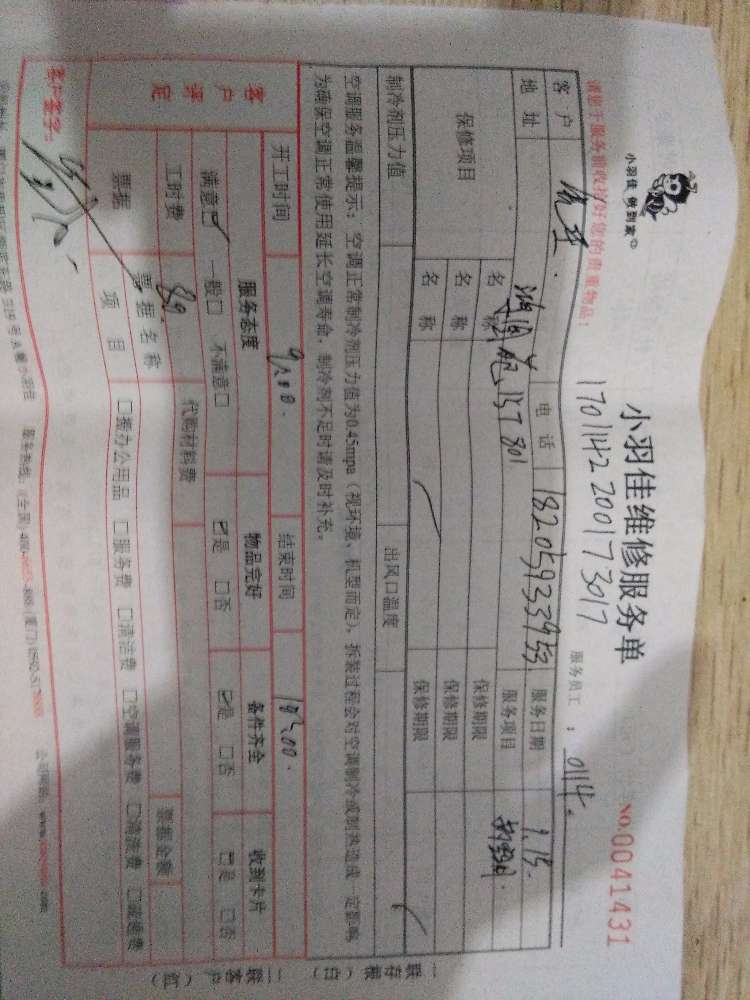 小羽佳 做到家
小羽佳维修服务单
NO.0041431
1701142200173017
服务员工：0114.
请您于服务前收拾好您的贵重物品！
客户
电话 18205933953
服务日期 1.15.
地址
801
服务项目
保修项目
名称
保修期限
名称
保修期限
名称
保修期限
制冷剂压力值
出风口温度
空调服务温馨提示：空调正常制冷剂压力值为0.45mpa（视环境、机型而定），拆装过程会对空调制冷或制热造成一定影响
为确保空调正常使用延长空调寿命，制冷剂不足时请及时补充。
客户评定
开工时间 9:00.
结束时间 10:00.
服务态度 物品完好 备件齐全 收到卡片
满意☑ 一般□ 不满意□ ☑是 □否 ☑是 □否 □是 □否
工时费 80 代购材料费
票据 票据名称 票据金额
项目 □擦办公用品 □服务费 □清洁费 □空调服务费 □清洗费 □疏通费
客户签字：
一联存根（白） 二联客户（红）